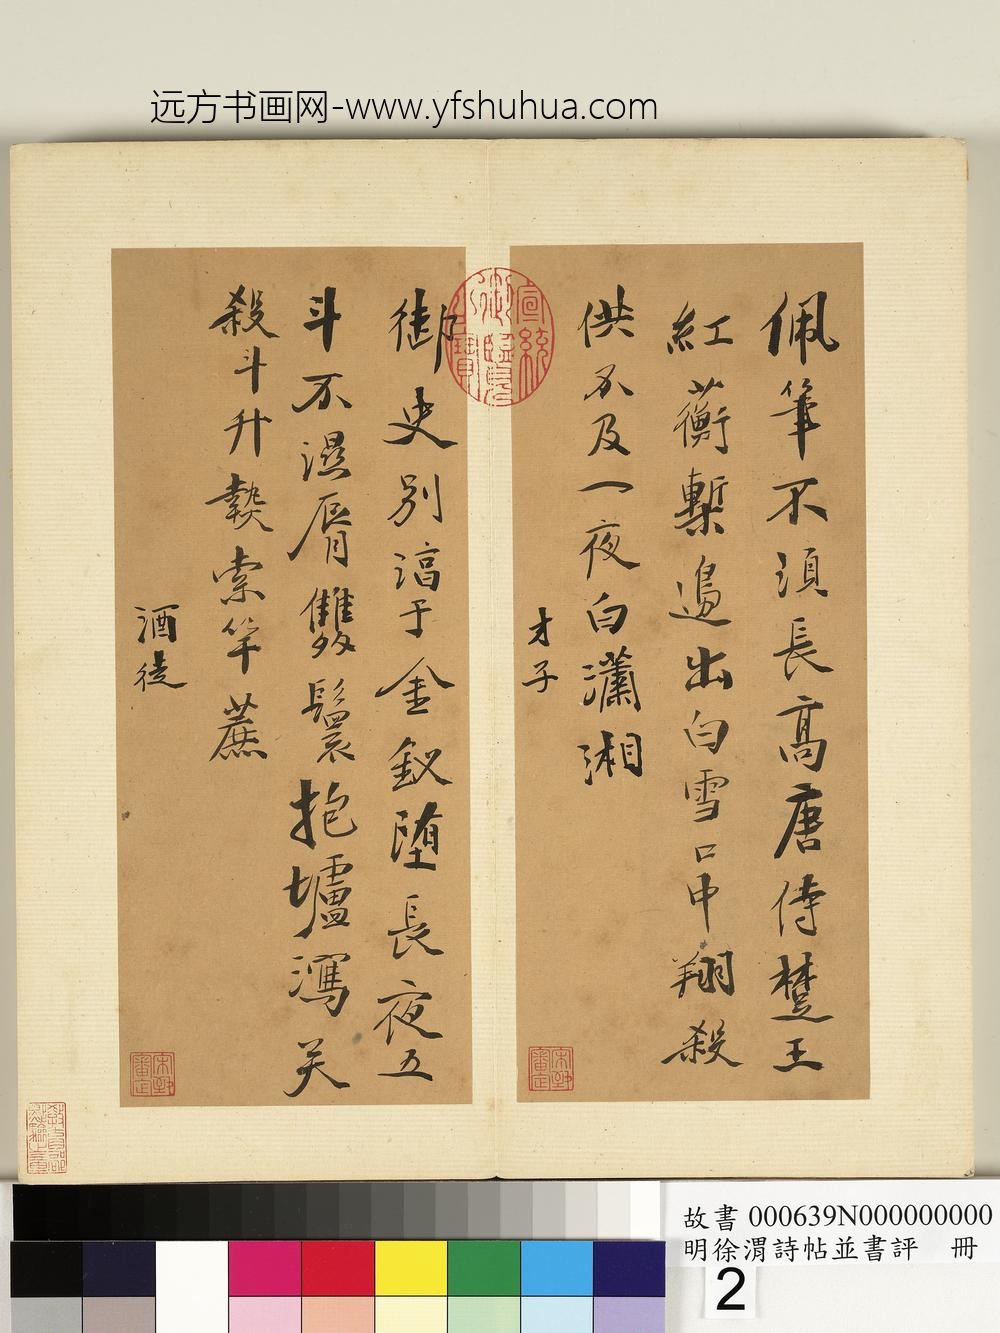 远方书画网-www.yfshuhua.com
佩筆不須長高唐侍楚王
紅蘅槧邊出白雪口中翔殺
供不及一夜白瀟湘
才子
御史別淳于金釵墮長夜五
斗不濕脣雙鬟抱壚瀉笑
殺斗升
索竿蔗
酒徒
宣統御覽之寶
故書 000639N000000000
明徐渭詩帖並書評 冊
2